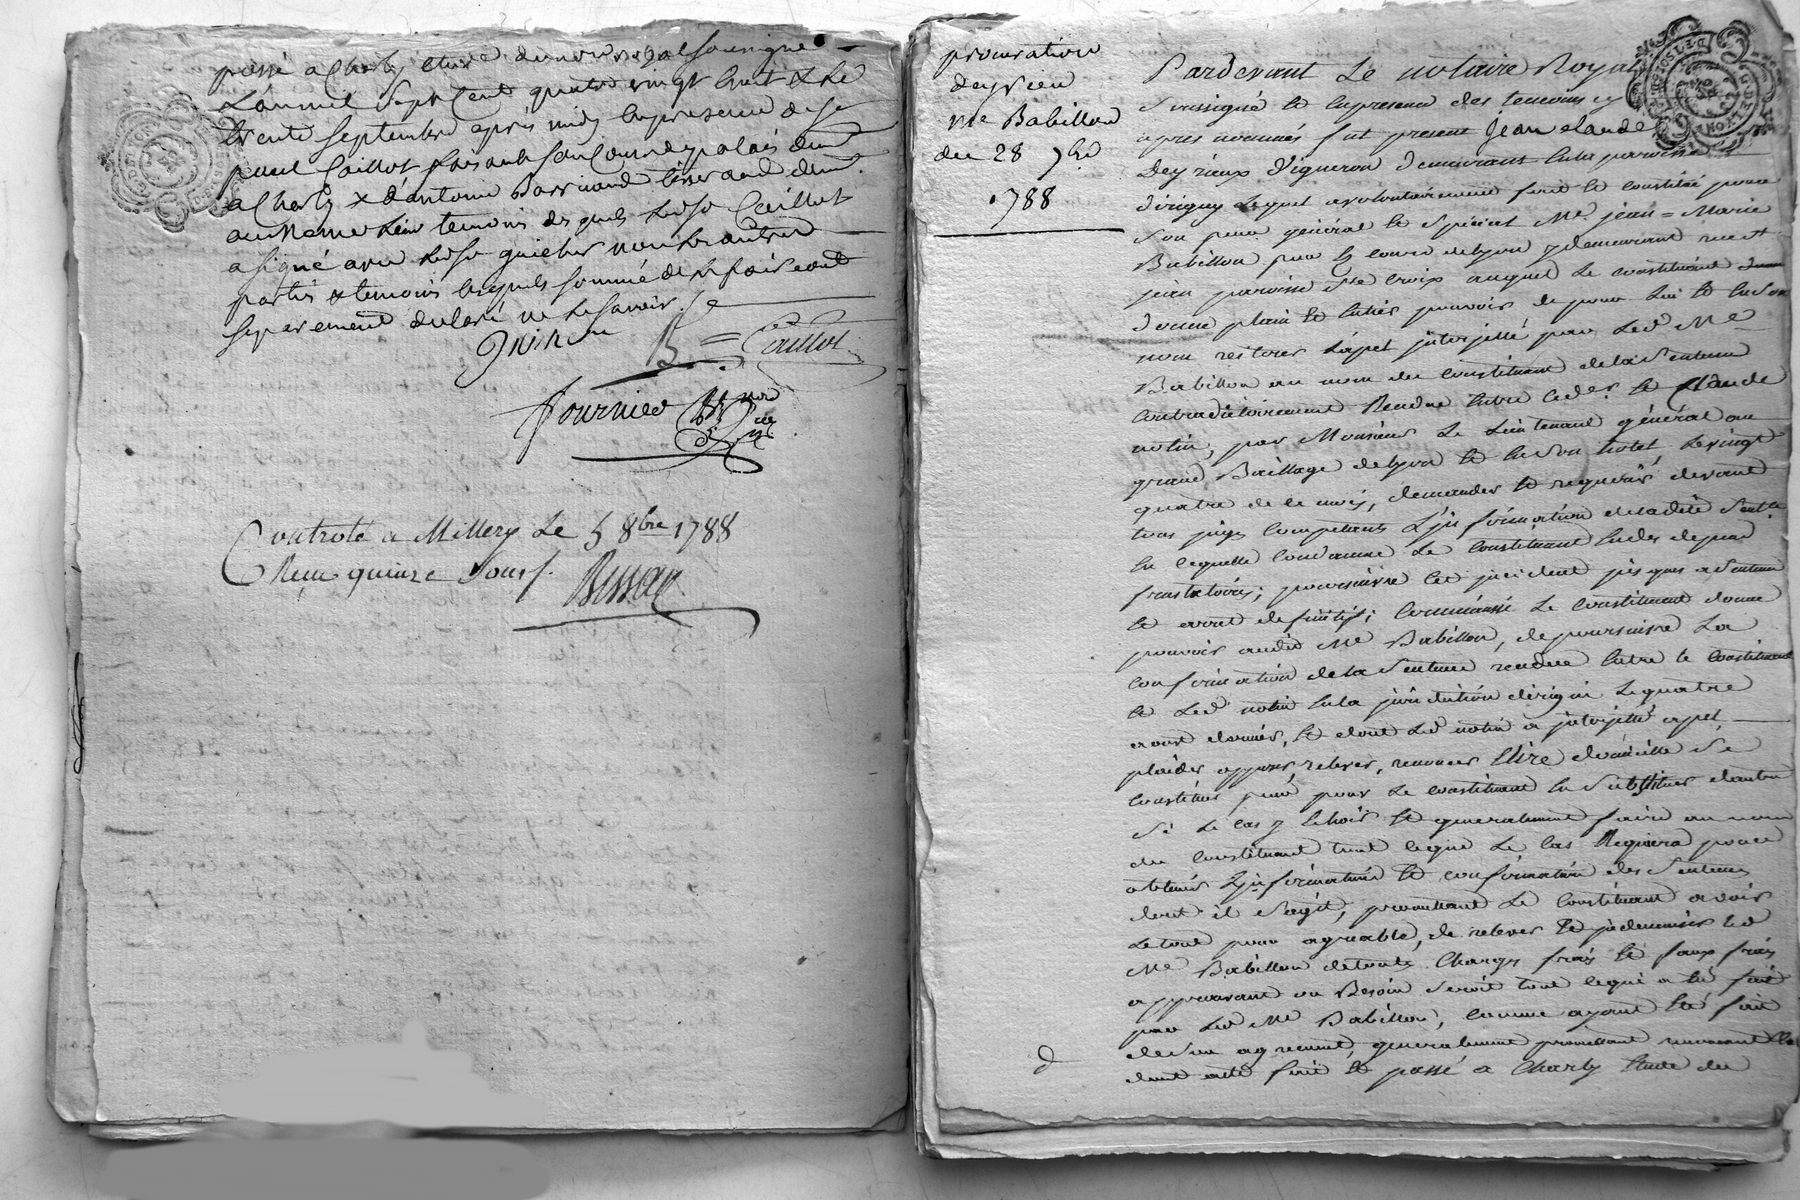 passé a Charly étude du notaire royal soussigné
L'an mil sept cent quatre vingt huit & le
trente septembre après midy en presence de sr
paul Caillot faisant son cours de palais dem.t
a Charly & d'antoine Barriaud tisserand dem.t
au meme lieu temoins des quels led sr Caillot
a signé avec led sr non les autres
partie & temoins lesquels sommé de le faire ont
separement declaré ne le savoir
B = Caillot
fournier
Controlé a Millery Le 5 8bre 1788
Reçu quinze sous
procuration
deyrieu
me Babillon
du 28 7bre
1788
Pardevant Le notaire Royal
soussigné et en presence des temoins cy
apres nommés fut present Jean claude
Deyrieux Vigneron demeurant en la paroisse
d'irigny Lequel a volontairement fait et constitué pour
son proc. général et spécial Me. jean = Marie
Babillon proc. es cours de Lyon y demeurant rue st
jean paroisse ste croix auquel Le constituant
donne plain et entier pouvoir de pour Lui et en son
nom L'apel interjetté par Led Me
Babillon au nom du constituant de la Sentence
contradictoirement Rendue entre et Claude
notin, par Monsieur Le Lieutenant général au
grand Baillage de Lyon et en son hotel, Le vingt
quatre de ce mois, demander et requerir devant
tous juges competants L'infirmation de ladite Sent.ce
en ce quelle condamne Le Constituant en des depend
frustatoires; poursuivre cet incident jusques a Sentence
et arret definitif; comme aussi Le constituant donne
pouvoir audit Me Babillon, de poursuivre La
confirmation de la Sentence rendue entre le constituant
et Led notin en la juridiction d'irigni Le quatre
aout dernier, et dont Led notin a interjetté apel
plaider opposer relever, renoncer Elire domicille Se
constituer pour Le constituant en Substituer d'autre
Si Le cas y Echoit et generalement faire au nom
du Constituant tout ce que Le Cas Requiera pour
obtenir L'infirmation et confirmation des Sentences
dont il S'agit, promettant Le Constituant avoir
Le tout pour agreable, de relever et indemniser Led
Me Babillon de toutes Charges frais et faux frais
approuvant ou Besoin Seroit tout ce qui a eté fait
par Led Me Babillon, comme ayant Eté fait
de Son agrement, generalement promettant renonceant
dont acte fait et passé a Charly Etude du